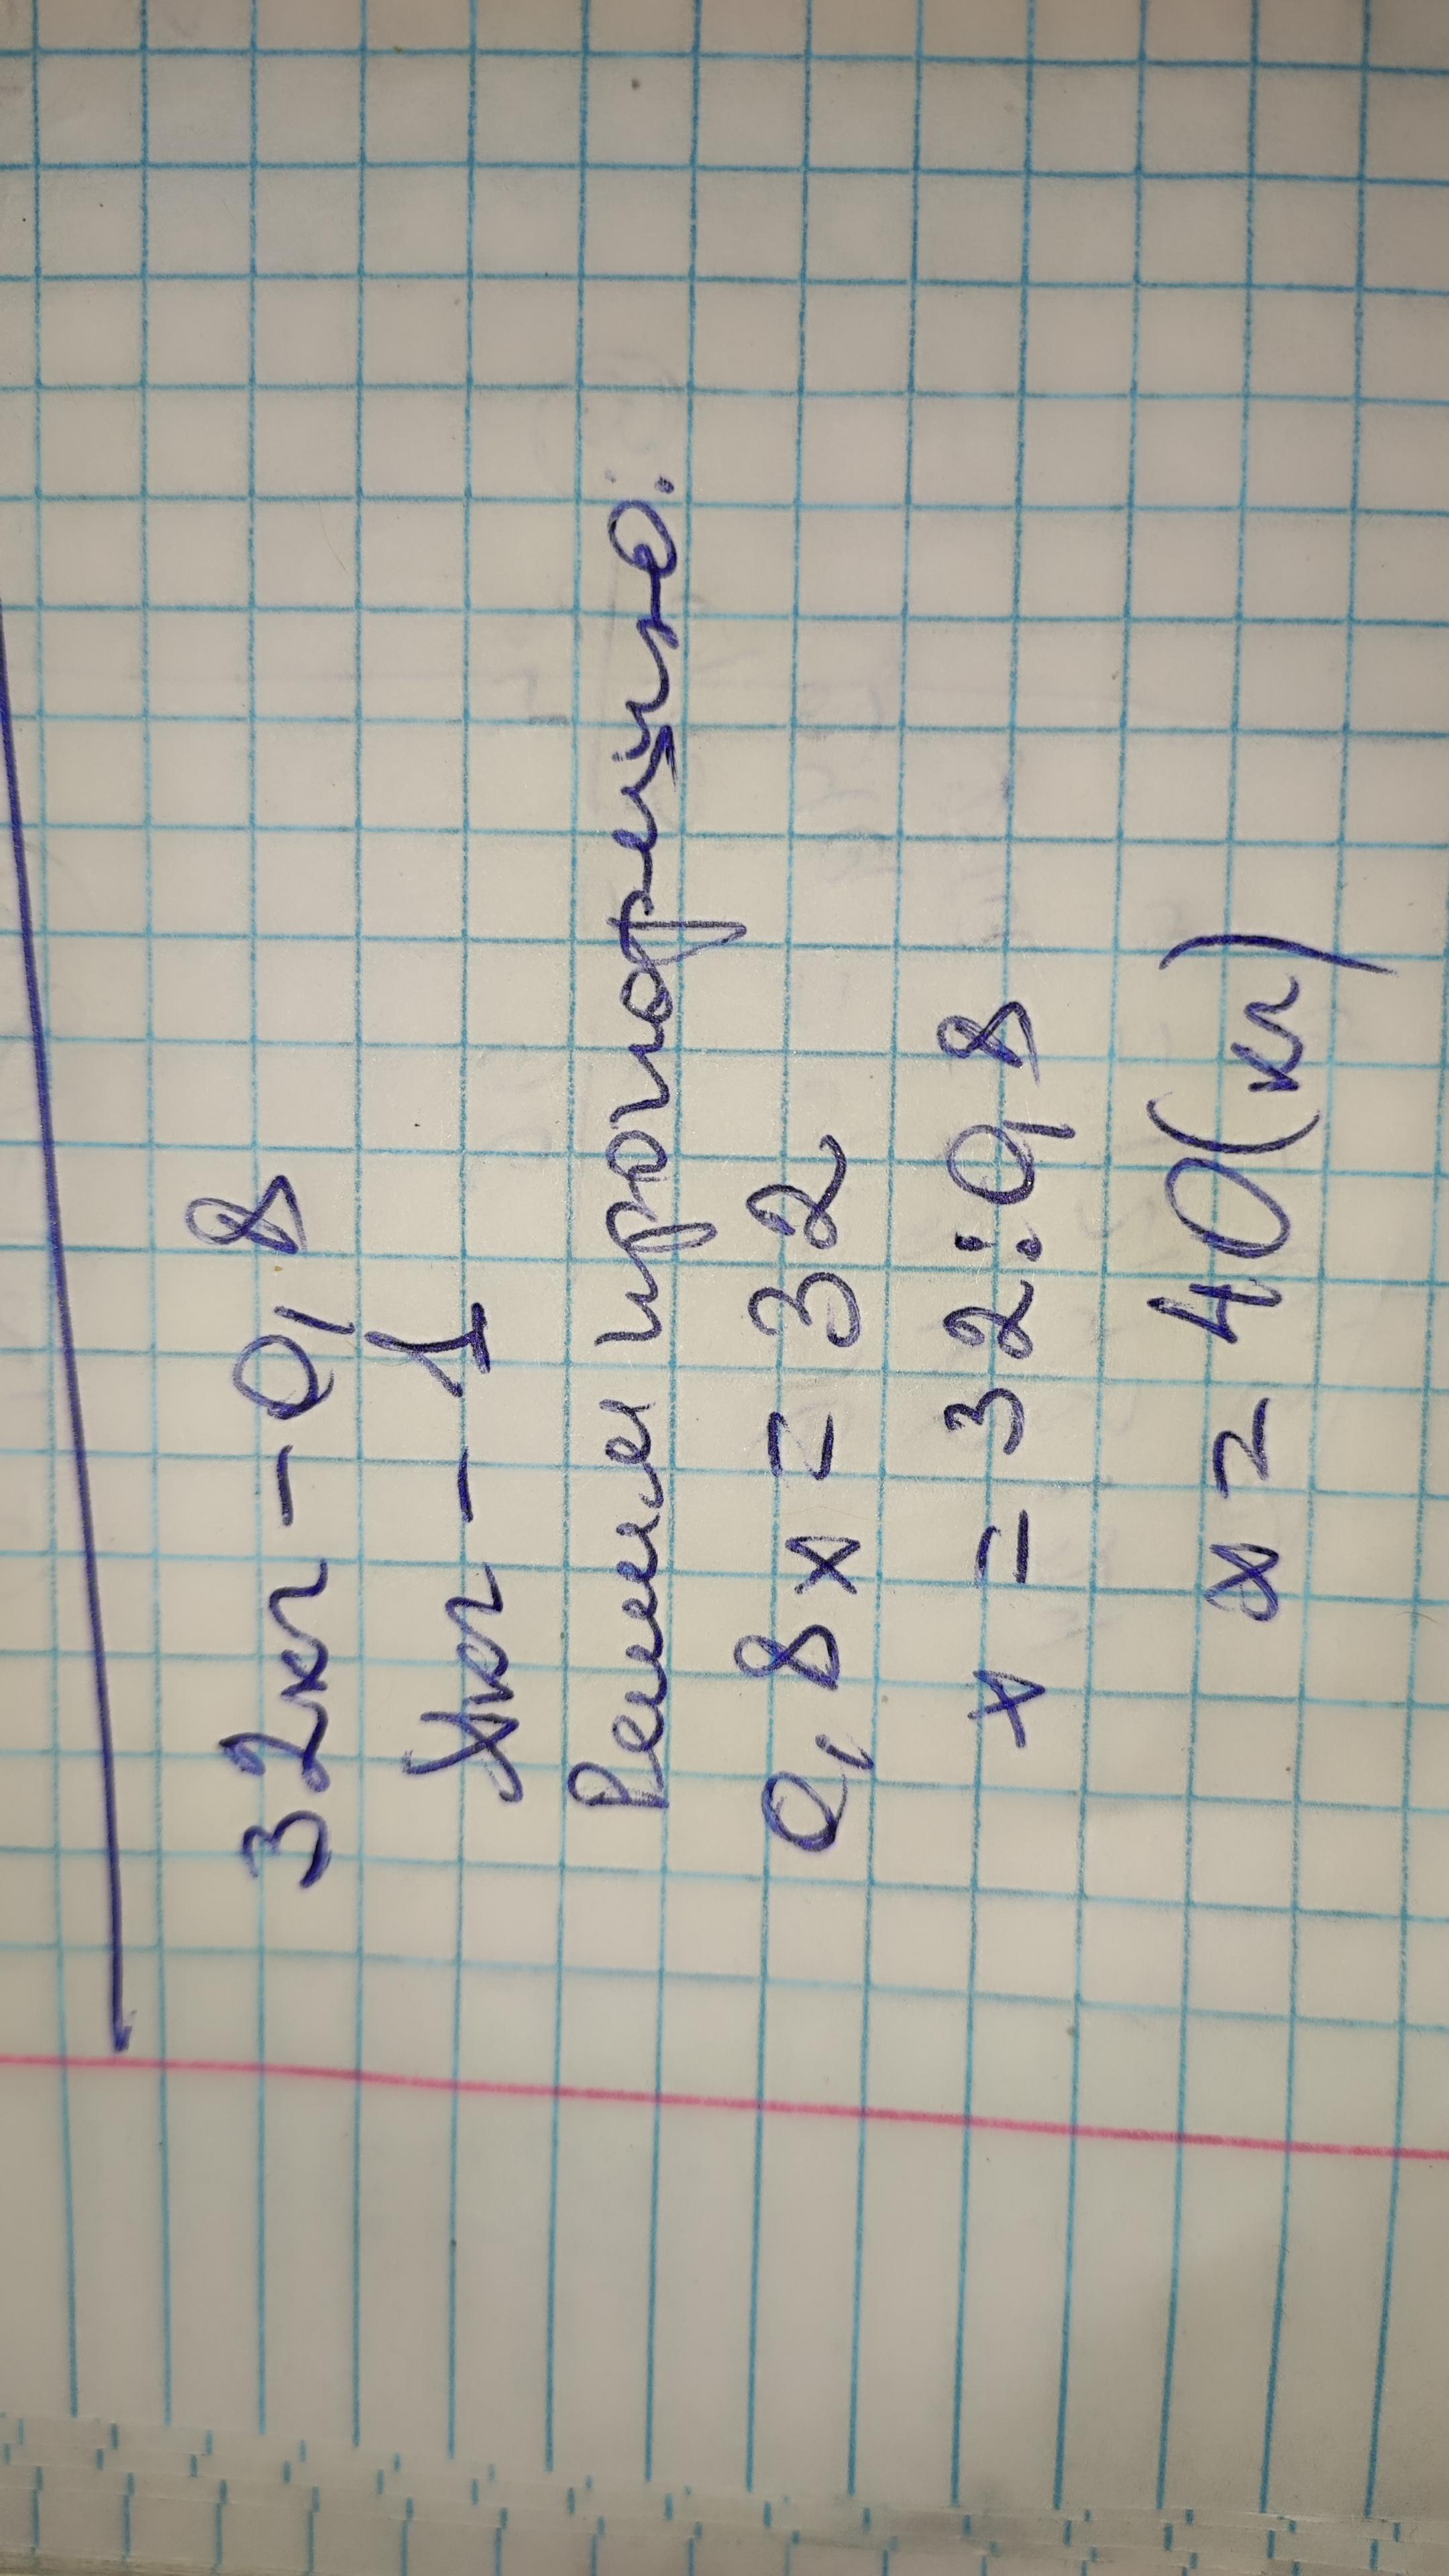 32кг - 0,8
Xкг - 1
Решим пропорцию.
0,8x = 32
x = 32:0,8
x = 40(кг)